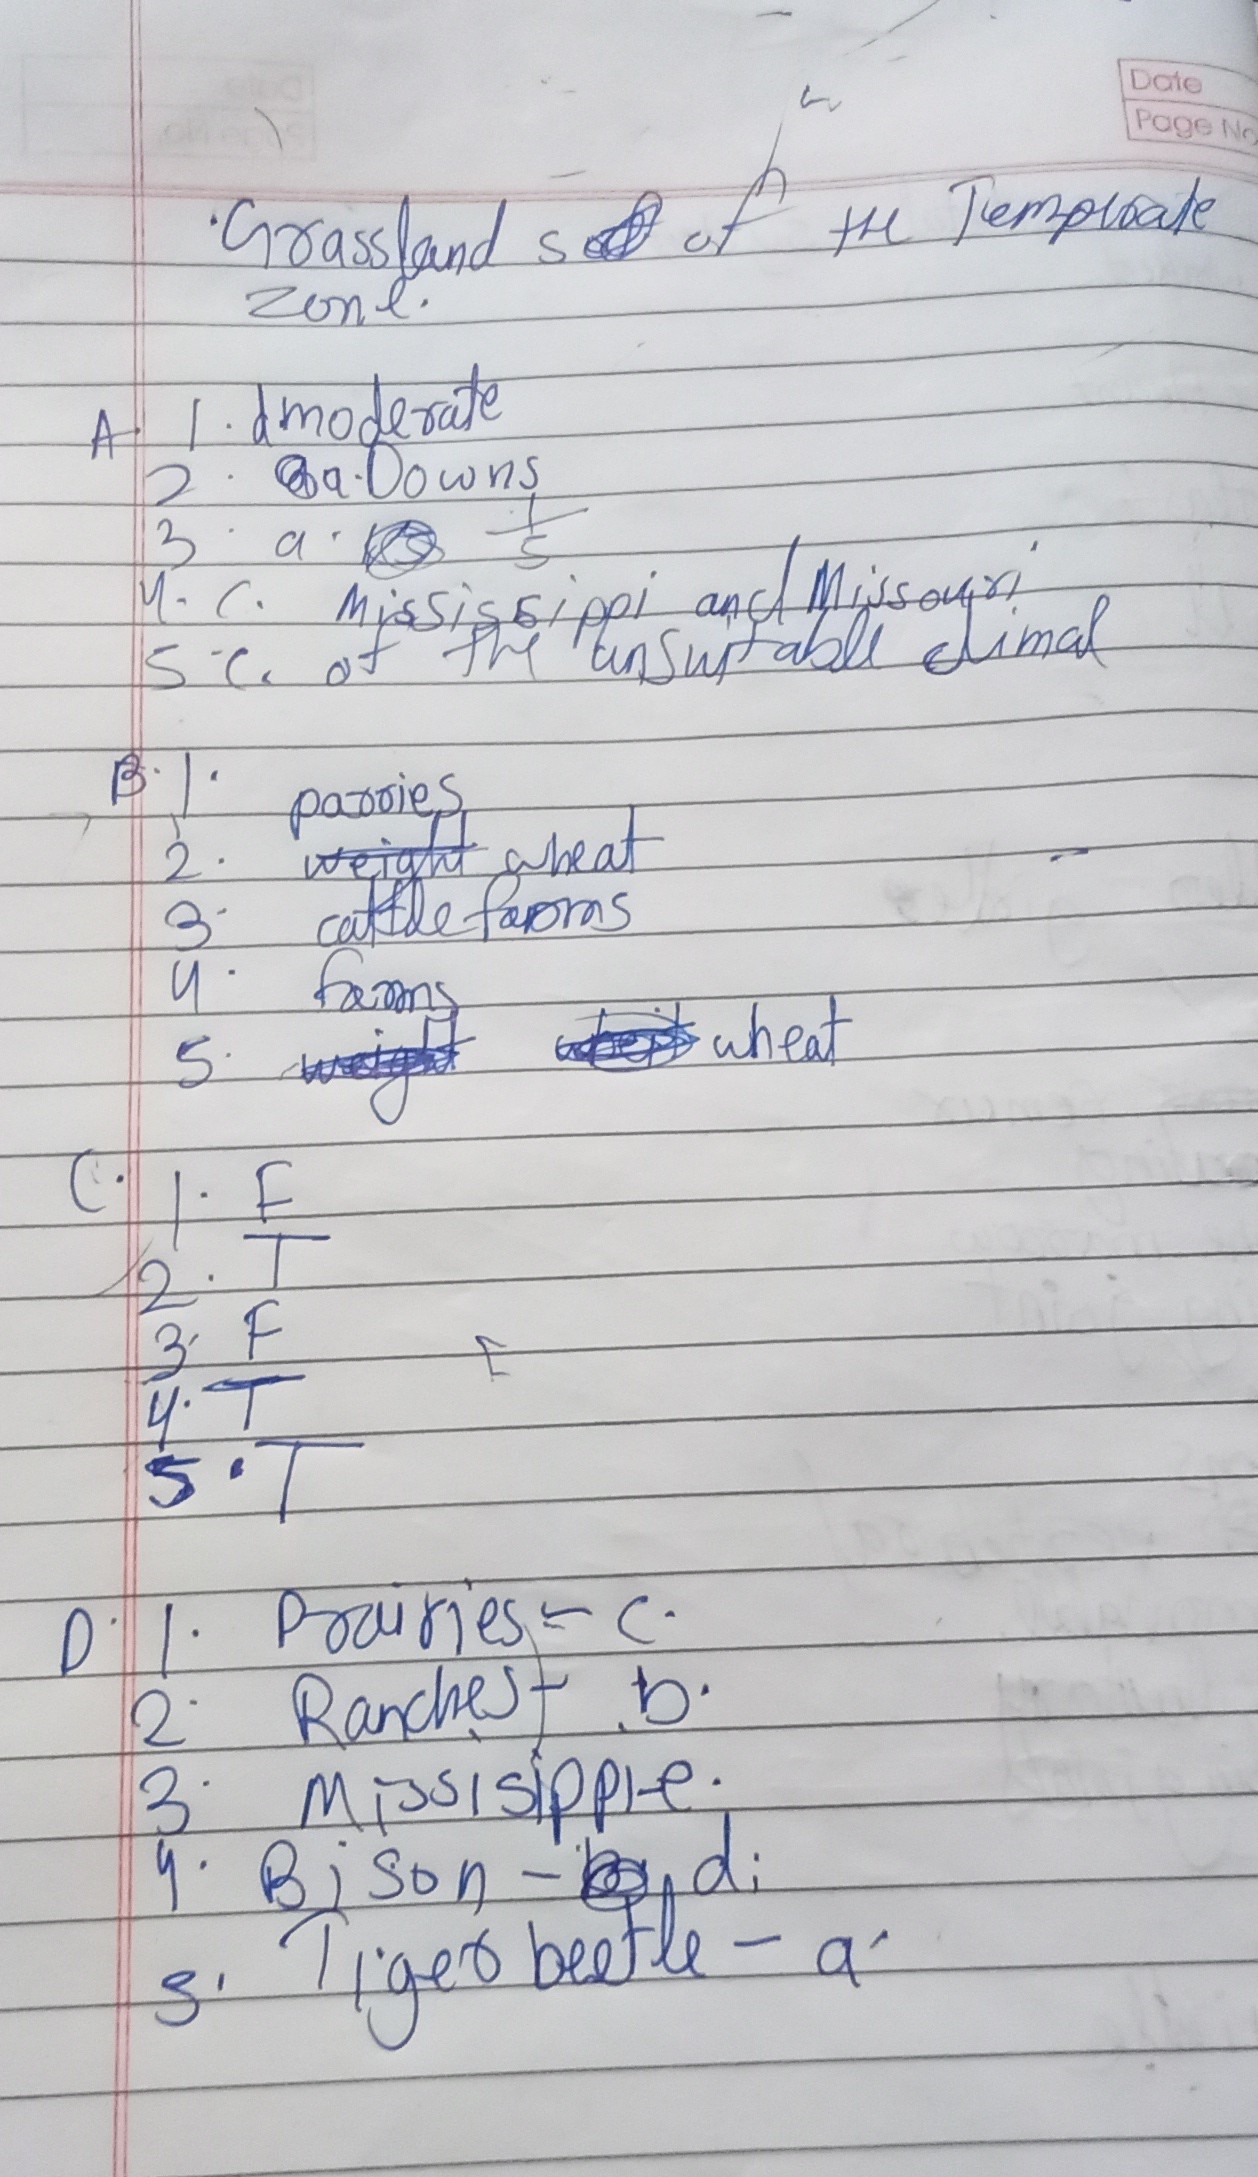 Date
Page No
Grassland s of the Temproate
zone.
A. 1. d moderate
2. a. Downs
3. a. 1/5
4. c. Mississippi and Missouri
5. c. of the unsuitable climal
B. 1. parries
2. weight wheat
3. cattle farms
4. farms
5. weight wheat
C. 1. F
2. T
3. F
4. T
5. T
D. 1. Prairies - c.
2. Ranches - b.
3. Missisippi-e.
4. Bison - d.
5. Tiger beetle - a.